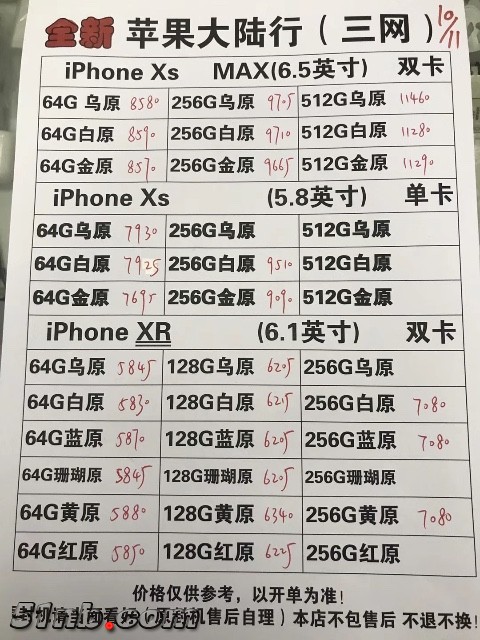 全新 苹果大陆行（三网） 10/11
iPhone Xs MAX(6.5英寸) 双卡
64G 乌原 8580 256G乌原 9705 512G乌原 11460
64G白原 8590 256G白原 9710 512G白原 11280
64G金原 8570 256G金原 9665 512G金原 11290
iPhone Xs (5.8英寸) 单卡
64G乌原 7930 256G乌原 512G乌原
64G白原 7925 256G白原 9510 512G白原
64G金原 7695 256G金原 9090 512G金原
iPhone XR (6.1英寸) 双卡
64G乌原 5845 128G乌原 6205 256G乌原
64G白原 5830 128G白原 6215 256G白原 7080
64G蓝原 5870 128G蓝原 6205 256G蓝原 7080
64G珊瑚原 5845 128G珊瑚原 6205 256G珊瑚原
64G黄原 5880 128G黄原 6340 256G黄原 7080
64G红原 5850 128G红原 6225 256G红原
价格仅供参考，以开单为准！
机售后自理）本店不包售后 不退不换！
51nb.com